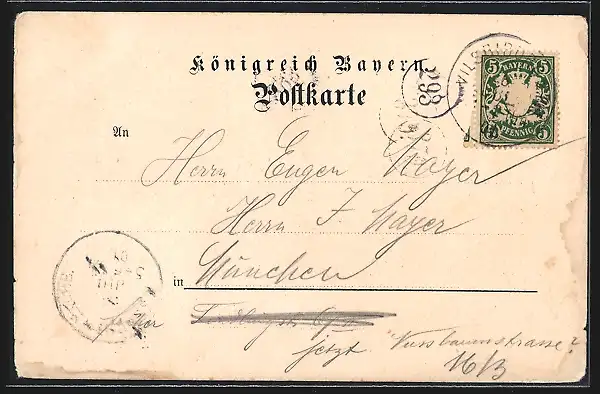 Königreich Bayern.
Postkarte
VILSBIBURG
293
5 BAYERN 5
5 PFENNIG 5
An
Herrn Eugen Mayer
Herrn J Mayer
in München
jetzt Nussbaumstrasse
16/3